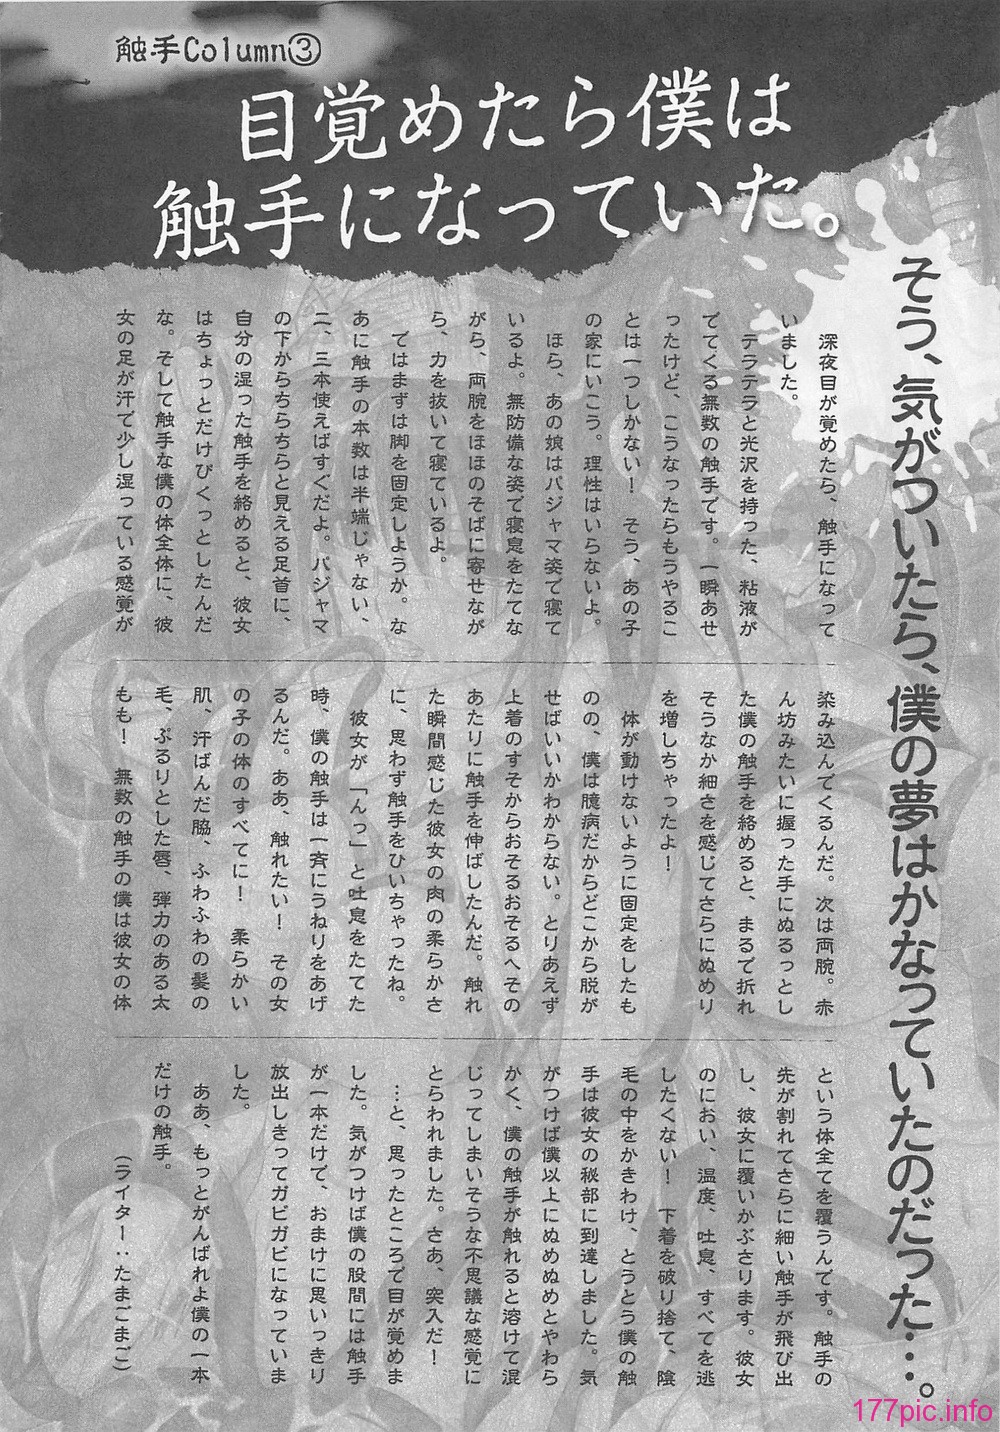 触手Column③
目覚めたら僕は
触手になっていた。
そう、気がついたら、僕の夢はかなっていたのだった…。
　深夜目が覚めたら、触手になって
いました。
　テラテラと光沢を持った、粘液が
でてくる無数の触手です。一瞬あせ
ったけど、こうなったらもうやるこ
とは一つしかない！　そう、あの子
の家にいこう。理性はいらないよ。
　ほら、あの娘はパジャマ姿で寝て
いるよ。無防備な姿で寝息をたてな
がら、両腕をほほのそばに寄せなが
ら、力を抜いて寝ているよ。
　ではまずは脚を固定しようか。な
あに触手の本数は半端じゃない、
二、三本使えばすぐだよ。パジャマ
の下からちらちらと見える足首に、
自分の湿った触手を絡めると、彼女
はちょっとだけぴくっとしたんだ
な。そして触手な僕の体全体に、彼
女の足が汗で少し湿っている感覚が
染み込んでくるんだ。次は両腕。赤
ん坊みたいに握った手にぬるっとし
た僕の触手を絡めると、まるで折れ
そうなか細さを感じてさらにぬめり
を増しちゃったよ！
　体が動けないように固定をしたも
のの、僕は臆病だからどこから脱が
せばいいかわからない。とりあえず
上着のすそからおそるおそるへその
あたりに触手を伸ばしたんだ。触れ
た瞬間感じた彼女の肉の柔らかさ
に、思わず触手をひいちゃったね。
　彼女が「んっ」と吐息をたてた
時、僕の触手は一斉にうねりをあげ
るんだ。ああ、触れたい！　その女
の子の体のすべてに！　柔らかい
肌、汗ばんだ脇、ふわふわの髪の
毛、ぷるりとした唇、弾力のある太
もも！　無数の触手の僕は彼女の体
という体全てを覆うんです。触手の
先が割れてさらに細い触手が飛び出
し、彼女に覆いかぶさります。彼女
のにおい、温度、吐息、すべてを逃
したくない！　下着を破り捨て、陰
毛の中をかきわけ、とうとう僕の触
手は彼女の秘部に到達しました。気
がつけば僕以上にぬめぬめとやわら
かく、僕の触手が触れると溶けて混
じってしまいそうな不思議な感覚に
とらわれました。さあ、突入だ！
　…と、思ったところで目が覚めま
した。気がつけば僕の股間には触手
が一本だけで、おまけに思いっきり
放出しきってガビガビになっていま
した。
　ああ、もっとがんばれよ僕の一本
だけの触手。
（ライター：たまごまご）
177pic.info